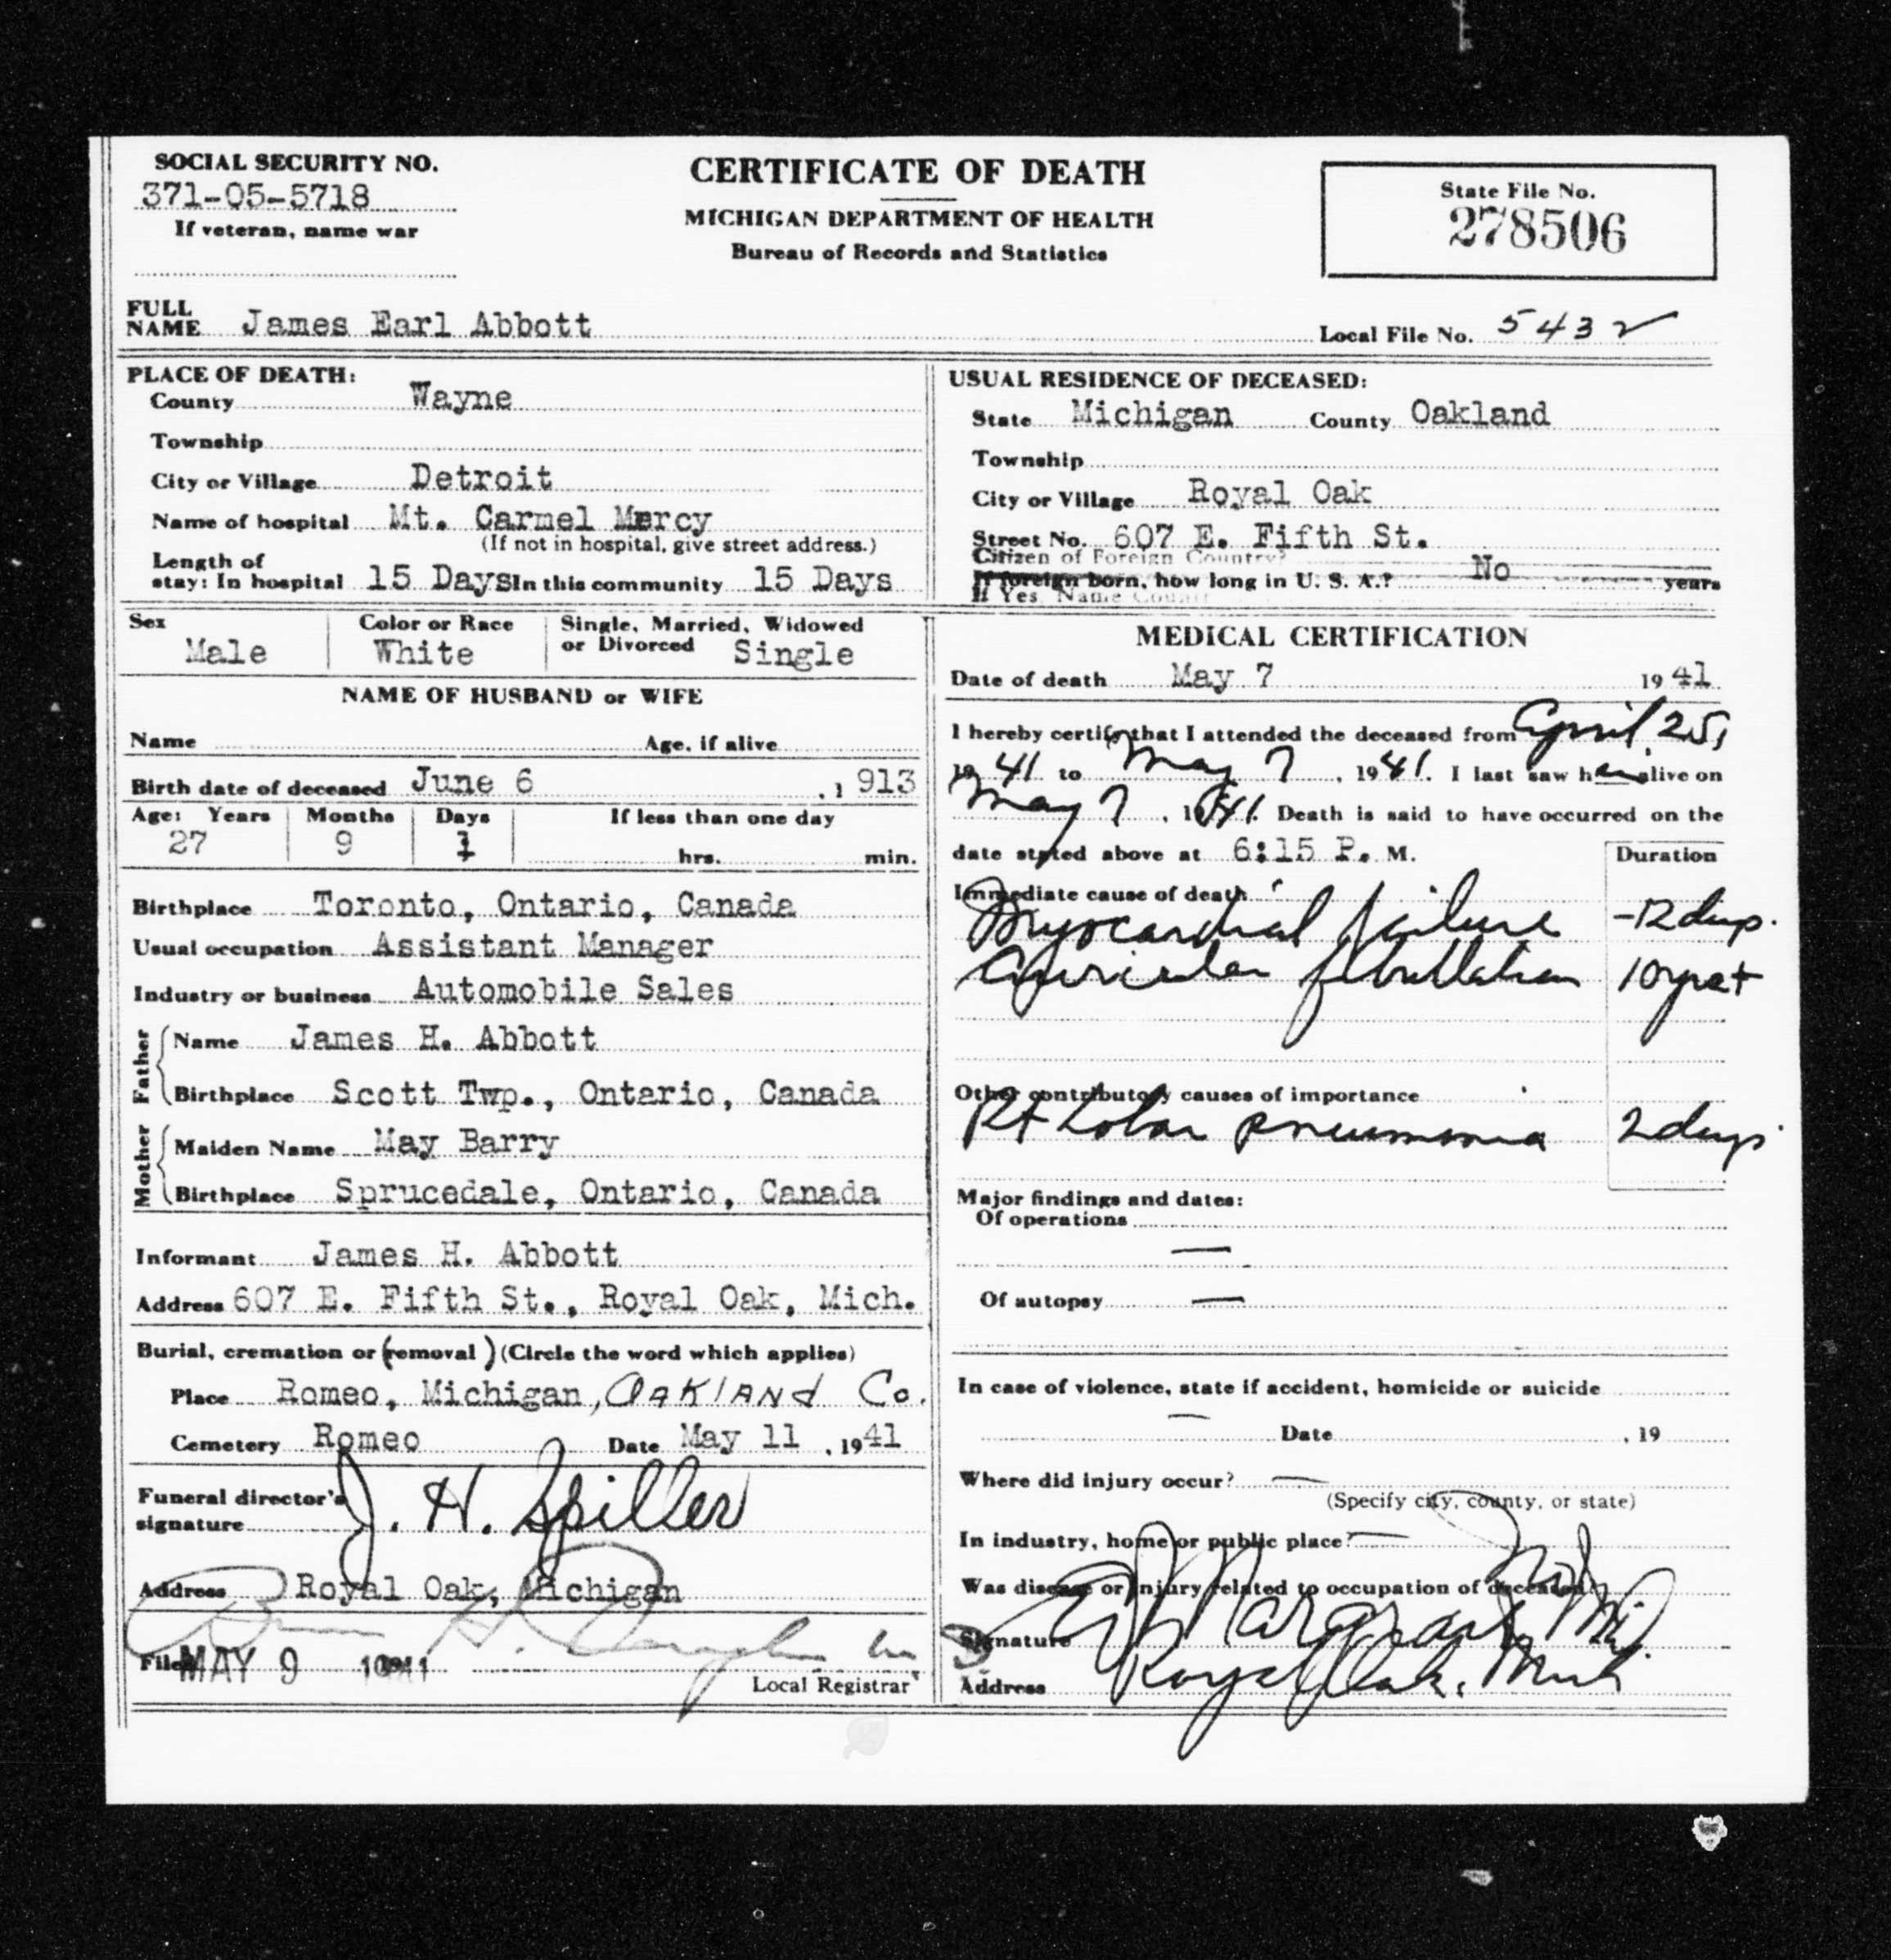 SOCIAL SECURITY NO.
371-05-5718
If veteran, name war
CERTIFICATE OF DEATH
MICHIGAN DEPARTMENT OF HEALTH
Bureau of Records and Statistics
State File No.
278506
FULL NAME James Earl Abbott
Local File No. 5432
PLACE OF DEATH:
County Wayne
Township
City or Village Detroit
Name of hospital Mt. Carmel Mercy
(If not in hospital, give street address.)
Length of
stay: In hospital 15 Days In this community 15 Days
USUAL RESIDENCE OF DECEASED:
State Michigan County Oakland
Township
City or Village Royal Oak
Street No. 607 E. Fifth St.
Citizen of Foreign Country?
If foreign born, how long in U. S. A.? No years
If Yes, Name
Sex Male
Color or Race White
Single, Married, Widowed
or Divorced Single
NAME OF HUSBAND or WIFE
Name Age, if alive
Birth date of deceased June 6, 1913
Age: Years Months Days If less than one day
27 9 1 hrs. min.
Birthplace Toronto, Ontario, Canada
Usual occupation Assistant Manager
Industry or business Automobile Sales
Father
Name James H. Abbott
Birthplace Scott Twp., Ontario, Canada
Mother
Maiden Name May Barry
Birthplace Sprucedale, Ontario, Canada
Informant James H. Abbott
Address 607 E. Fifth St., Royal Oak, Mich.
Burial, cremation or (removal) (Circle the word which applies)
Place Romeo, Michigan, OAKLAND Co.
Cemetery Romeo Date May 11, 1941
Funeral director's
signature J. H. Spiller
Address Royal Oak, Michigan
Filed MAY 9 1941
Local Registrar
MEDICAL CERTIFICATION
Date of death May 7 1941
I hereby certify that I attended the deceased from April 25,
1941 to May 7, 1941. I last saw h alive on
May 7, 1941. Death is said to have occurred on the
date stated above at 6:15 P. M.
Duration
Immediate cause of death
Myocardial failure -12 days.
Auricular fibrillation 10 yrs+
Other contributory causes of importance
Rt Lobar pneumonia 2 days
Major findings and dates:
Of operations
—
Of autopsy —
In case of violence, state if accident, homicide or suicide
— Date , 19
Where did injury occur? —
(Specify city, county, or state)
In industry, home or public place? —
Was disease or injury related to occupation of deceased? No
Signature
Address Royal Oak, Mich